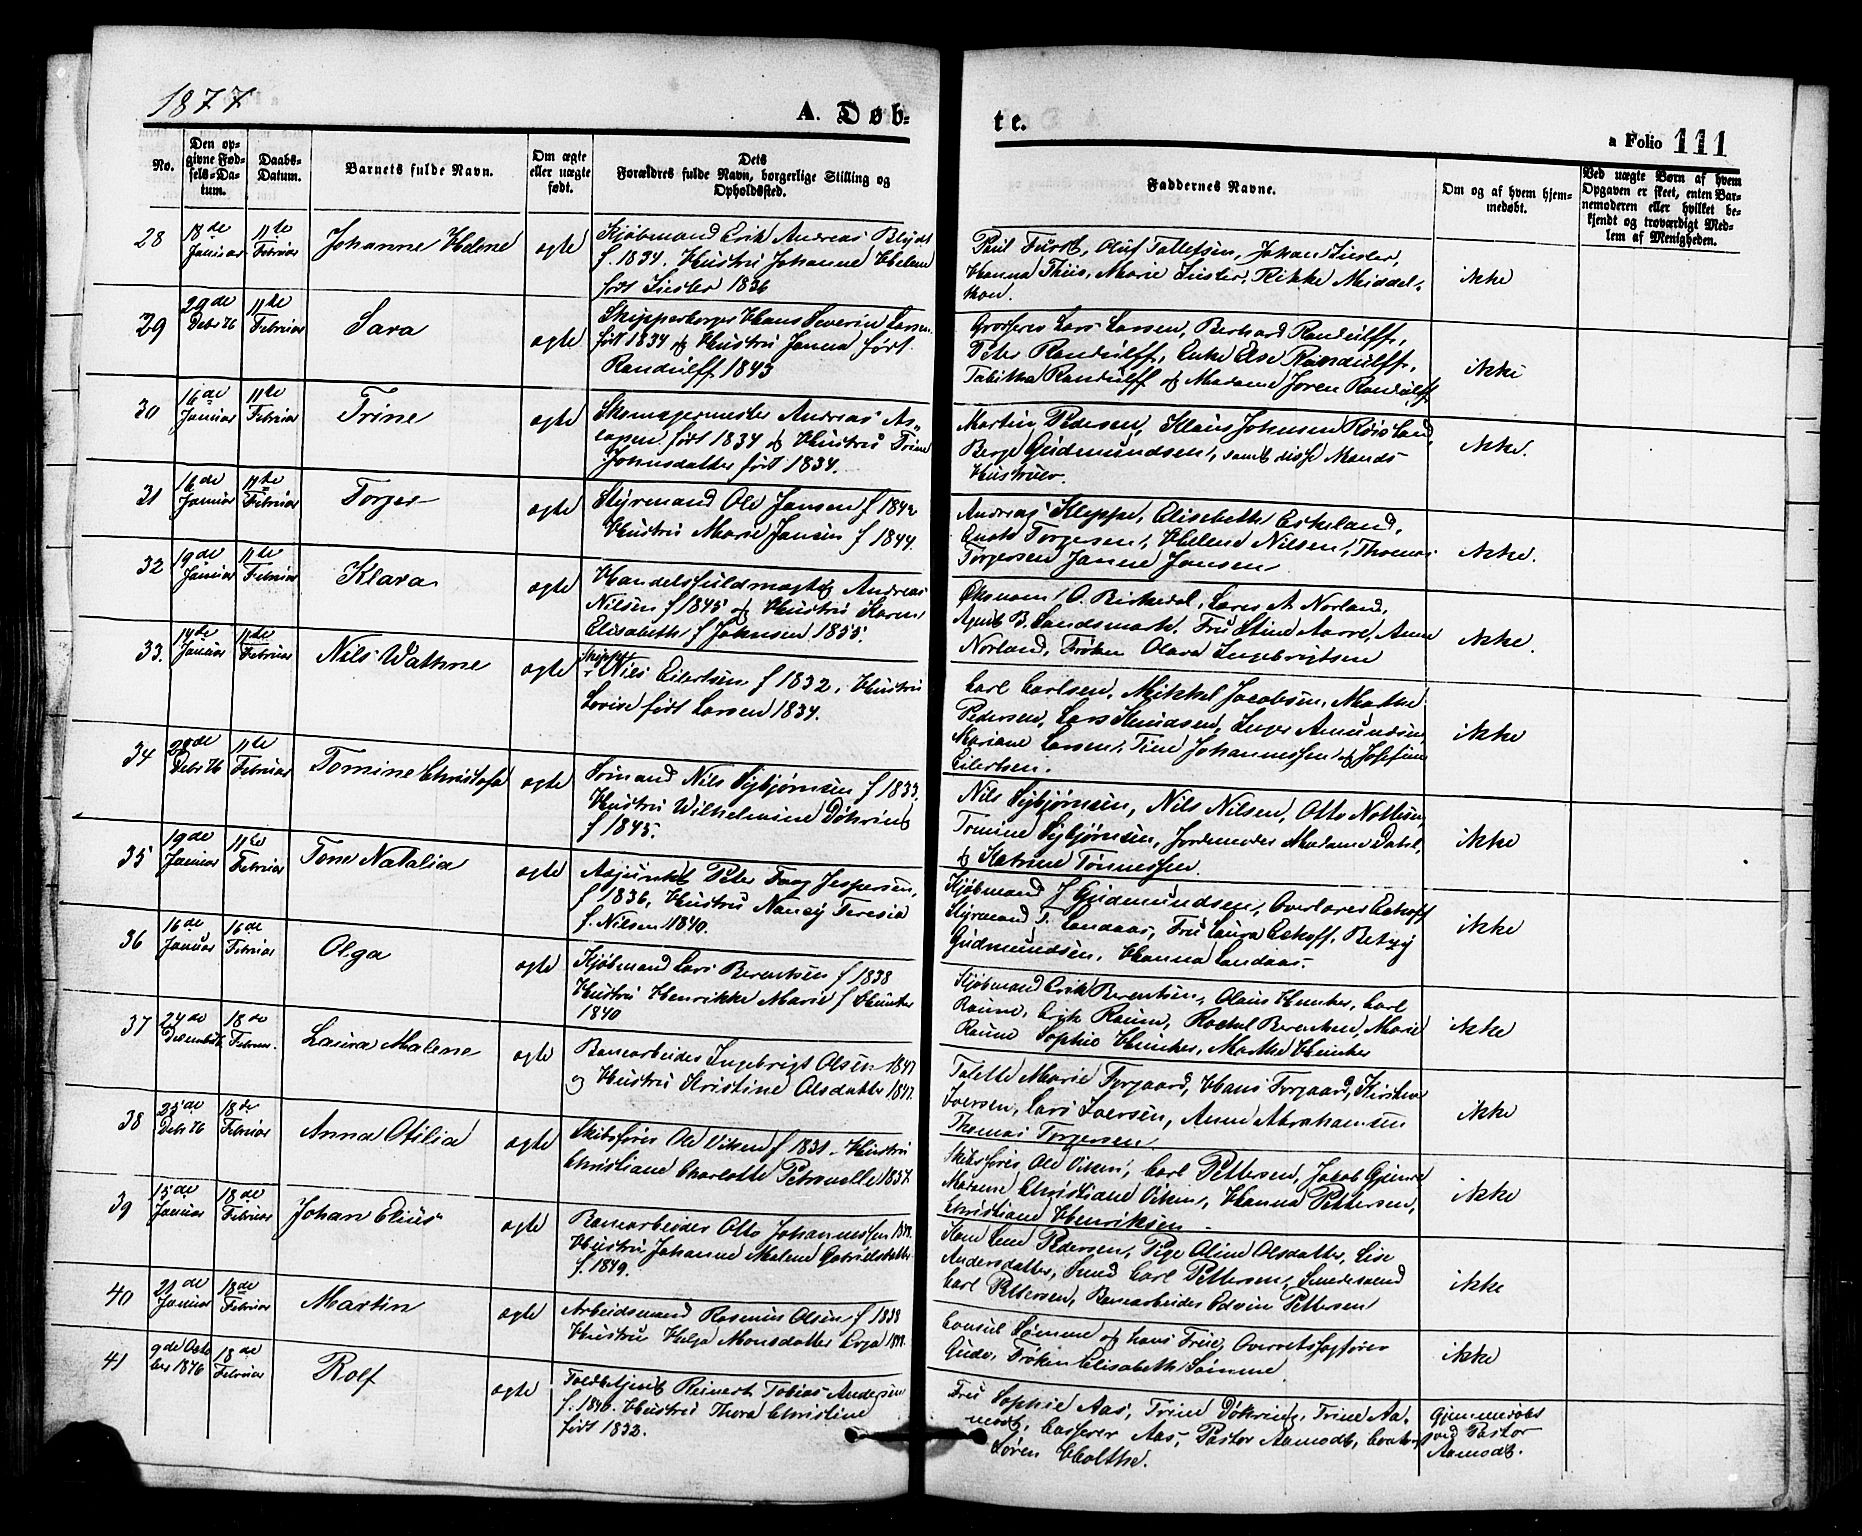 1877
A. Døb-
te.
a Folio 111
No.
Den op-
givne Fød-
sels-Da-
tum.
Daabs-
Datum.
Barnets fulde Navn.
Om ægte
eller uægte
født.
Dets
Forældres fulde Navn, borgerlige Stilling og
Opholdssted.
Faddernes Navne.
Om og af hvem hjem-
medøbt.
Ved uægte Børn af hvem
Opgaven er skeet, enten Bar-
nemoderen eller hvilket be-
kjendt og troværdigt Med-
lem af Menigheden.
28
18de
Januar
11te
Februar
Johanne Helene
ægte
Kjøbmand Erik Andreas Blydt
f. 1834. Hustru Johanne Helene
født Sieler 1836
Paul Furst, Oluf Tallefsen, Johan
Hanna Thiis, Marie Rikke Middel-
thon.
ikke
29
29de
Debr 76
11te
Februar
Sara
ægte
Skipperborger Hans Severin Larsen
født 1834 & Hustru Janna født
Randulff 1843
Grosserer Lars Larsen, Berhard Randulff,
Peter Randulff, Enke Else Randulff,
Tabitha Randulff & Madame Joren Randulff
ikke
30
16de
Januar
11te
Februar
Trine
ægte
Skomagermester Andreas As-
lagsen født 1834 & Hustru Trine
Johnsdatter født 1834.
Martin Pedersen, Klaus Johnsen Røisland,
Berge Gudmundsen, samt disse Mænds
Hustruer.
ikke.
31
16de
Januar
11te
Februar
Torger
ægte
Styrmand Ole Jansen f 1842
Hustru Marie Jansen f 1844.
Andreas Kleppe, Elisabeth Eskeland,
Torgersen, Helene Nilsen, Thomas
Torgersen Janne Jansen
ikke.
32
19de
Januar
11te
Februar
Klara
ægte
Handelsfuldmægt Andreas
Nilsen f 1845 & Hustru Karen
Elisabeth f Johnsen 1855.
O. Birkedal, Lars A. Norland,
Agent B. Landsmark, Fru Stine Aarre, Anne
Norland, Frøken Olava Ingebrigtsen
ikke.
33.
14de
Januar
11te
Februar
Nils Wathne
ægte
Skipper
Nils Eilertsen f 1832, Hustru
Lovise født Larsen 1834.
Carl Carlsen, Mikkel Jacobsen, Marthe
Pedersen, Lars Knudsen, Inger Amundsen
Mariane Larsen, Tine Johannessen & Josefine
Eilertsen.
ikke
34
28de
Debr 76
11te
Februar
Tomine Christofa
ægte
Sømand Nils Sybjørnsen f 1833.
Hustru Wilhelmine Døhring
f 1845.
Nils Sybjørnsen, Nils Nilsen, Otto
Tomine Sybjørnsen, Jordemoder Madame Dahl,
& Katrine Tønnessen.
ikke
35
19de
Januar
11te
Februar
Tone Natalia
ægte
Adjunkt Peter Faag Jespersen,
f 1836, Hustru Nancy Teresia
f. Nilsen 1840.
Kjøbmand J Gudmundsen, Overlærer Eckoff
Styrmand T. Landaas, Fru Laura Eckoff, Betzy
Gudmundsen, Hanna Landaas.
ikke
36
16de
Januar
16de
Februar
Olga
ægte
Kjøbmand Lars Berentsen f 1838
Hustru Henrikke Marie f Huncher
1840
Kjøbmand Erik Berentsen, Olaus Carl
Raune, Erik Raune, Rachel Berentsen, Marie
Raune Sophie Marthe
ikke
37
24de
18de
Februar
Laura Malene
ægte
Banearbeider Ingebrigt Olsen 1847
og Hustru Kristine Olsdatter 1847.
Talette Marie Torgaard, Hans Torgaard, Kirstine
Iversen, Lars Iversen, Anne Abrahamsen
Thomas Torgersen
ikke
38
25de
Debr 76
18de
Februar
Anna Otilia
ægte
Skibsfører Ole Viken f 1831. Hustru
Christiane Charlotte Petronelle 1837.
Skibsfører Ole Viken, Carl Pettersen, Jakob
Madame Christiane Viken, Hanna Pettersen,
Christiane Henriksen
ikke
39
15de
Januar
18de
Februar
Johan Elius
ægte
Banearbeider Otto Johannessen
Hustru Johanne Malene Gabrielsdatter
f. 1849.
Kone Lene Pedersen, Pige Oline Olsdatter, Lise
Andersdatter, Smed Carl Pettersen, Smedesvend
Carl Pettersen, Banearbeider Edvin Pettersen
ikke
40
21de
Januar
18de
Februar
Martin
ægte
Arbeidsmand Rasmus Olsen f 1838
Hustru Helga Monsdatter
Consul Sømme & hans Frue, Overretssagfører
Gude, Frøken Elisabeth Sømme.
ikke
41
9de Octo
ber 1876
18de
Februar
Rolf
ægte
Toldbetjent Reinert Tobias Andersen
f. 1840. Hustru Thora Christine
født 1832.
Fru Sophie Aas, Trine Døhring, Trine Aa-
modt, Casserer Aas, Pastor Aamodt,
Søren Holthe.
Hjemmedøbt
ved Pastor
Aamodt.